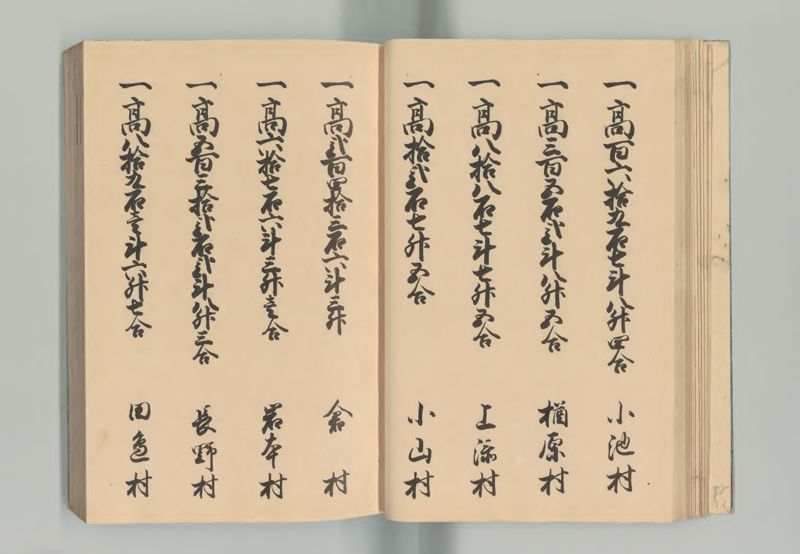 一高百六拾五石七斗八升四合 小池村
一高三百五石弐斗八升五合 楢原村
一高八拾八石七斗七升五合 上添村
一高拾弐石七升五合 小山村
一高弐百四拾三石六斗三升 倉村
一高六拾七石六斗三升壱合 岩本村
一高五百三拾弐石弐斗八升三合 長野村
一高八拾五石壱斗六升七合 田色村